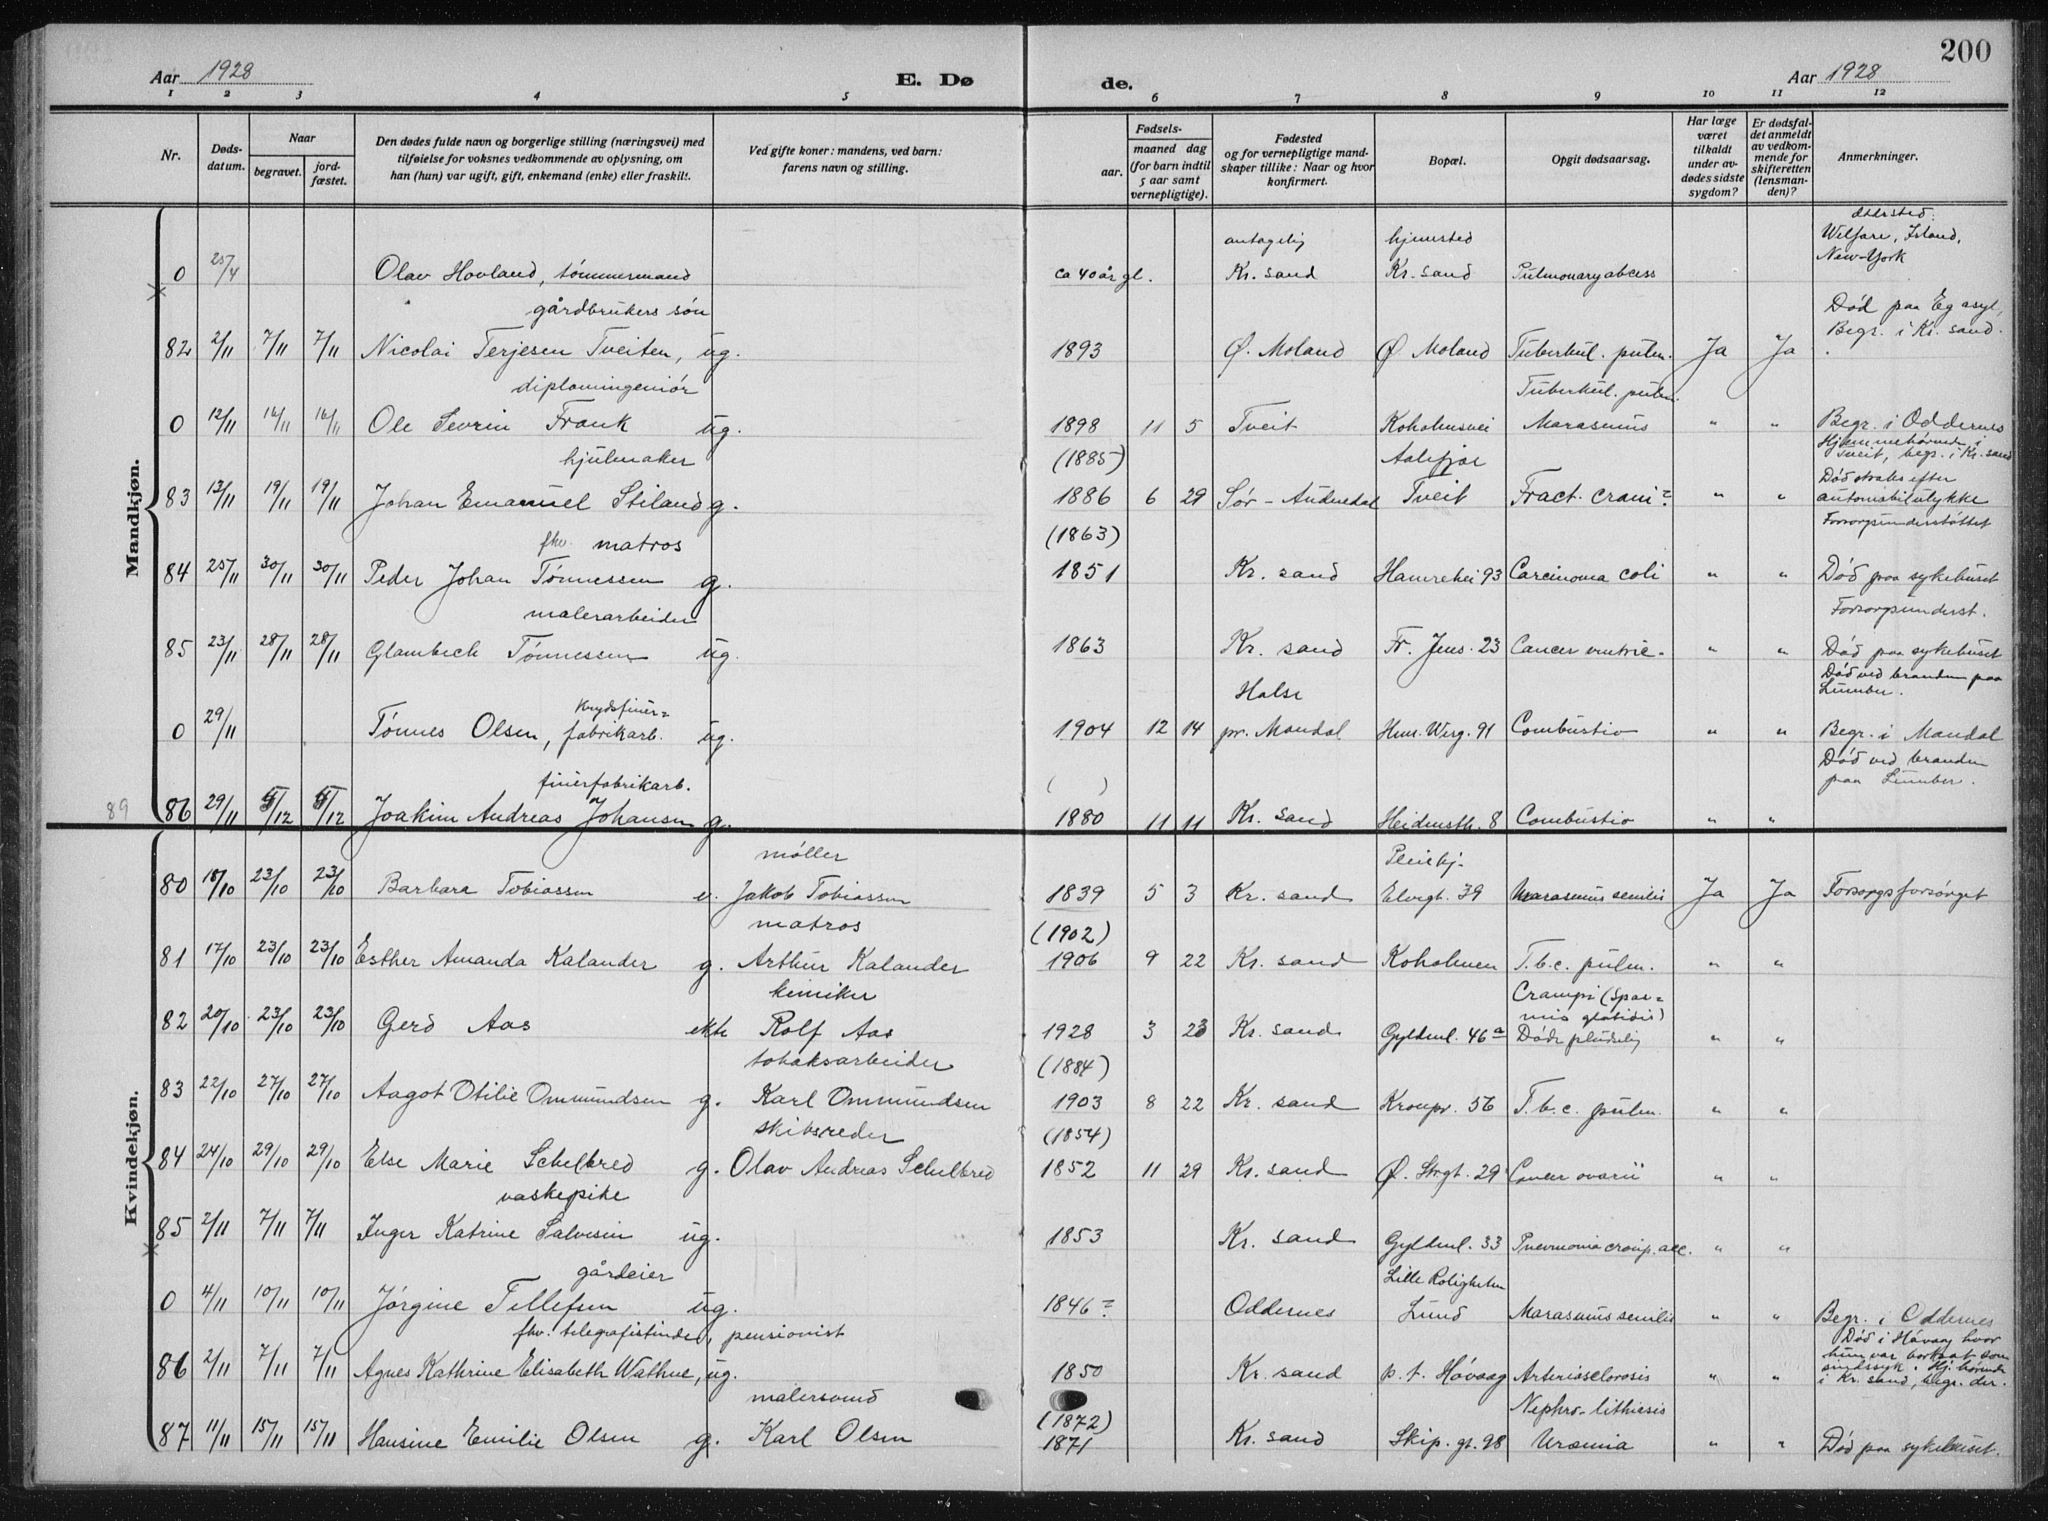 200
Aar 1928
E. Dø
de.
Aar 1928
1 2 3 4 5 6 7 8 9 10 11 12
Nr.
Døds-
datum.
Naar
begravet.
jord-
fæstet.
Den dødes fulde navn og borgerlige stilling (næringsvei) med
tilføielse for voksnes vedkommende av oplysning, om
han (hun) var ugift, gift, enkemand (enke) eller fraskilt.
Ved gifte koner: mandens, ved barn:
farens navn og stilling.
Fødsels-
aar.
maaned dag
(for barn indtil
5 aar samt
vernepligtige).
Fødested
og for vernepligtige mand-
skaper tillike: Naar og hvor
konfirmert.
Bopæl.
Opgit dødsaarsag.
Har læge
været
tilkaldt
under av-
dødes sidste
sygdom?
Er dødsfal-
det anmeldt
av vedkom-
mende for
skifteretten
(lensman-
den)?
Anmerkninger.
Mandkjøn.
antagelig hjemsted Welfare, Island,
0 25/4 Olav Hovland, tømmermand ca 40 år gl. Kr. sand Kr. sand Pulmonary abcess New-York
gårdbrukers søn Død paa Eg asyl,
Begr. i Kr. sand.
82 2/11 7/11 7/11 Nicolai Terjesen Tveiten, ug. 1893 Ø. Moland Ø Moland Tuberkul. pulm. Ja Ja
diplomingeniør Tuberkul. pulm.
0 12/11 16/11 16/11 Ole Sevrin Frank ug. 1898 11 5 Tveit Koholmsvei Marasmus " " Begr. i Oddernes
hjulmaker (1885) Hjemmehørende i
Tveit, begr. i Kr. sand
Død straks efter
83 13/11 19/11 19/11 Johan Emanuel Stiland g. 1886 6 29 Sør-Audnedal Tveit Fract. crani= " " automobilulykke
fhv. matros (1863) Forsorgsunderstøttet
84 25/11 30/11 30/11 Peder Johan Tønnessen g. 1851 Kr. sand Hamrehei 93 Carcinoma coli " " Død paa sykehuset
malerarbeider Forsorgsunderst.
85 23/11 28/11 28/11 Glambech Tønnessen ug. 1863 Kr. sand Fr. Jens. 23 Cancer ventric- " " Død paa sykehuset
Halse Død ved branden paa
Lumber.
krydsfiner=
0 29/11 Tønnes Olsen, fabrikarb. ug. 1904 12 14 pr. Mandal Hen. Werg. 91 Combustio " " Begr. i Mandal
finerfabrikarb. ( ) Død ved branden
paa Lumber.
89 86 29/11 5/12 5/12 Joakim Andreas Johansen g. 1880 11 11 Kr. sand Heidensth. 8 Combustio " "
Kvindekjøn.
møller Pleiehj.
80 18/10 23/10 23/10 Barbara Tobiassen e. Jakob Tobiassen 1839 5 3 Kr. sand Elvegt. 39 Marasmus senilis Ja Ja Forsorgsforsørget
matros (1902)
81 17/10 23/10 23/10 Esther Amanda Kalander g. Arthur Kalander 1906 9 22 Kr. sand Koholmen T.b.c. pulm. " "
kemiker Crampi (Spas=
mis glotidis)
82 20/10 23/10 23/10 Gerd Aas ekte Rolf Aas 1928 3 23 Kr. sand Gyldenl. 46a Døde pludselig " "
tobaksarbeider (1884)
83 22/10 27/10 27/10 Aagot Otilie Ommundsen g. Karl Ommundsen 1903 8 22 Kr. sand Kronpr. 56 T.b.c. pulm. " "
skibsreder (1854)
84 24/10 29/10 29/10 Else Marie Schelbred g. Olav Andreas Schelbred 1852 11 29 Kr. sand Ø. Strgt. 29 Cancer ovarii " "
vaskepike
85 2/11 7/11 7/11 Inger Katrine Salvesen ug. 1853 Kr. sand Gyldenl. 33 Pneumonia croup. acc. " "
gårdeier Lille Roligheten
0 4/11 10/11 10/11 Jørgine Tellefsen ug. 1846= Oddernes Lund Marasmus senilis " " Begr. i Oddernes
fhv. telegrafistinde, pensionist Død i Høvaag hvor
hun var bortsat som
86 2/11 7/11 7/11 Agnes Kathrine Elisabeth Wathne, ug. 1850 Kr. sand p.t. Høvaag Arteriosclerosis " " sindssyk. Hj. hørende
i Kr. sand, begr. der.
malersvend (1872) Nephro-lithiasis
87 11/11 15/11 15/11 Hansine Emilie Olsen g. Karl Olsen 1871 Kr. sand Skip. gt. 98 Uræmia " " Død paa sykehuset.